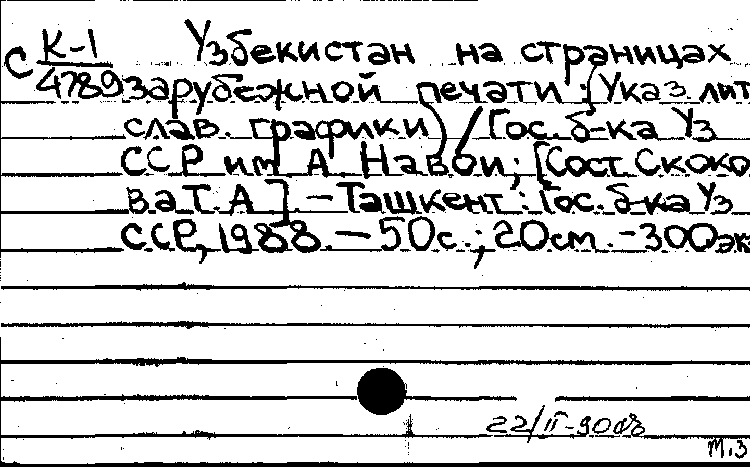 С К-1 Узбекистан на страницах
4789 зарубежной печати: (Указ. лит.
слав. графики) / Гос. б-ка Уз
ССР им А. Навои; [Сост. Скоко
ва Т. А]. - Ташкент: Гос. б-ка Уз
ССР, 1988. - 50с.; 20см. - 300эк
22/II-90
м.з